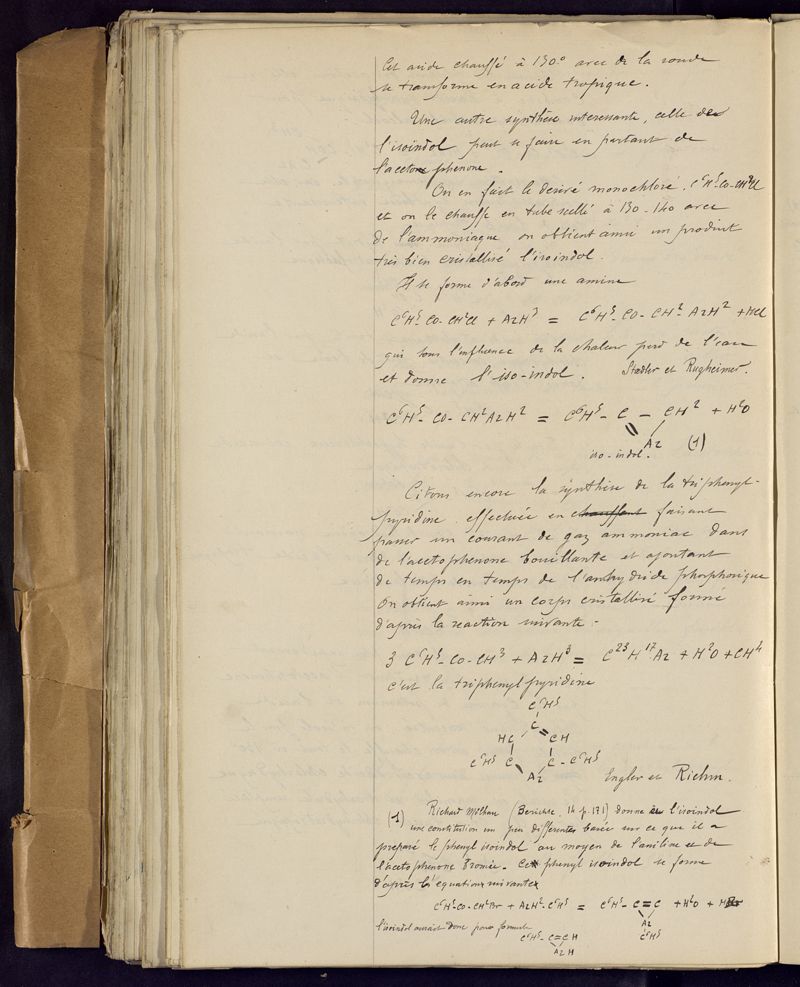 Cet acide chauffé à 130° avec de la soude
se transforme en acide tropique.
Une autre synthèse interessante, celle de
l'isoindol peut se faire en partant de
l'acetone phenone.
On en fait le derivé monochloré. C⁶H⁵-CO-CH²Cl
et on le chauffe en tube scellé à 130-140 avec
de l'ammoniaque on obtient ainsi un produit
très bien cristallisé l'isoindol.
Il se forme d'abord une amine
C⁶H⁵-CO-CH²Cl + AzH³ = C⁶H⁵-CO-CH²-AzH² + HCl
qui sous l'influence de la chaleur perd de l'eau
et donne l'iso-indol. Stædler et Rugheimer.
C⁶H⁵-CO-CH²AzH² = C⁶H⁵-C-CH² + H²O
Az (1)
iso-indol.
Citons encore la synthèse de la triphenyl-
pyridine effectuée en chauffant faisant
passer un courant de gaz ammoniac dans
de l'acetophenone bouillante et ajoutant
de temps en temps de l'anhydride phosphorique
On obtient ainsi un corps cristallisé formé
d'après la reaction suivante:-
3 C⁶H⁵-CO-CH³ + AzH³ = C²³H¹⁷Az + H²O + CH⁴
c'est la triphenylpyridine
C⁶H⁵
C
HC CH
C⁶H⁵ C C-C⁶H⁵
Az Engler et Riehm.
(1) Richard Möhlau (Berichte. 14 p. 171) donne à l'isoindol
une constitution un peu differente basée sur ce que il a
preparé le phenyl isoindol au moyen de l'aniline et de
l'acetophenone bromée. Ce phenyl isoindol se forme
d'après l'equation suivante
C⁶H⁵-CO-CH²Br + AzH²-C⁶H⁵ = C⁶H⁵-C=C + H²O + HBr
Az
l'isoindol aurait donc pour formule C⁶H⁵
C⁶H⁵-C=CH
AzH